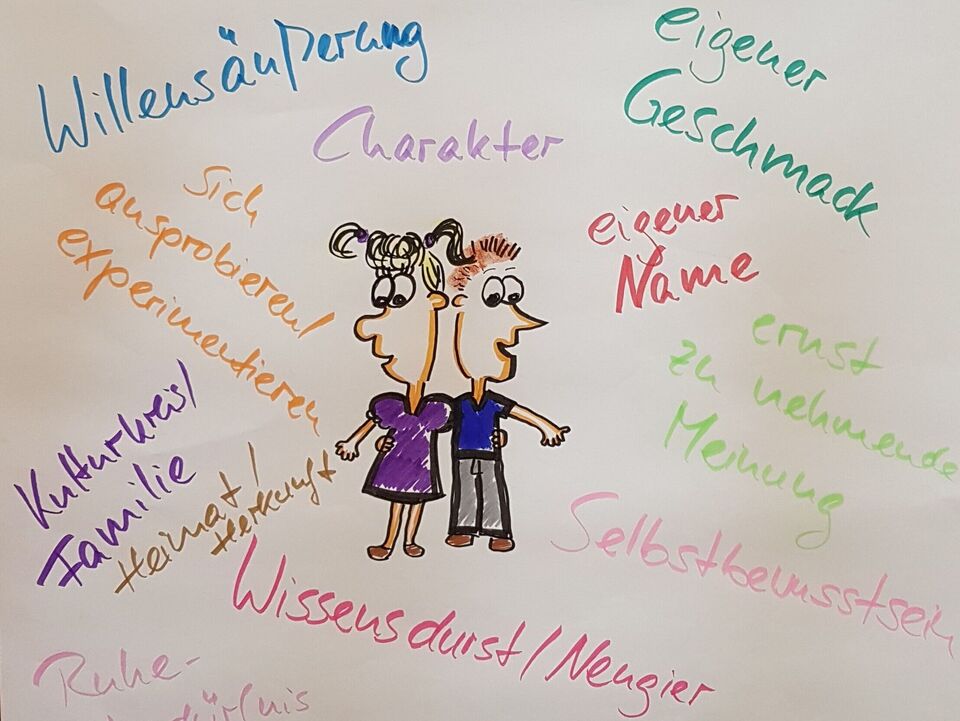 Willensäußerung
eigener
Geschmack
Charakter
sich
ausprobieren/
experimentieren
eigener
Name
ernst
zu nehmende
Meinung
Kulturkreis/
Familie
Heimat/
Herkunft
Selbstbewusstsein
Wissensdurst/Neugier
Ruhe-